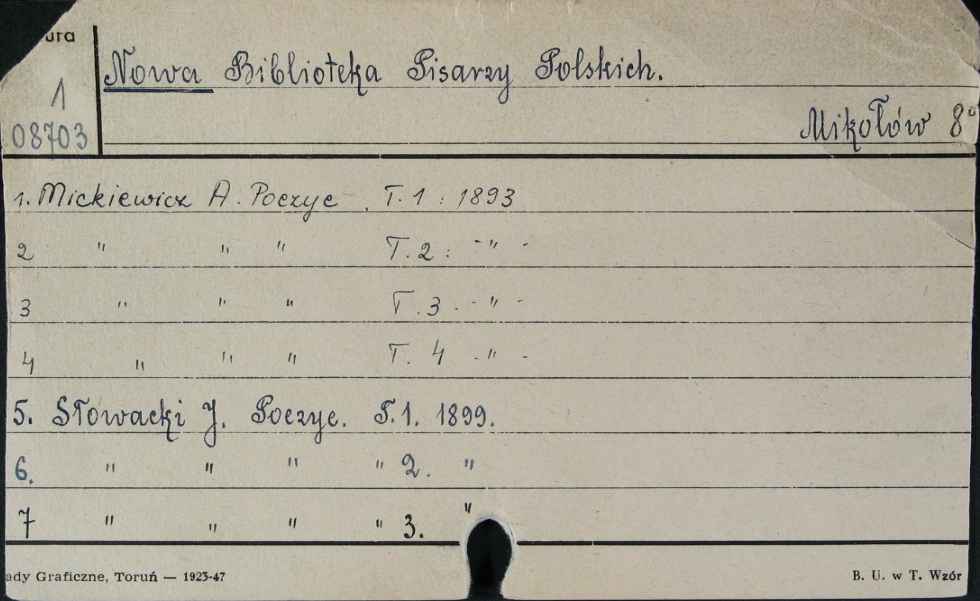 ura
1
08703
Nowa Biblioteka Pisarzy Polskich.
Mikołów 8°
1. Mickiewicz A. Poezye . T. 1 : 1893
2 " " " T. 2 : - " -
3 " " " T. 3 . - " -
4 " " " T. 4 . - " -
5. Słowacki J. Poezye. T. 1. 1899.
6. " " " " 2. "
7 " " " " 3. "
ady Graficzne, Toruń — 1923-47
B. U. w T. Wzór